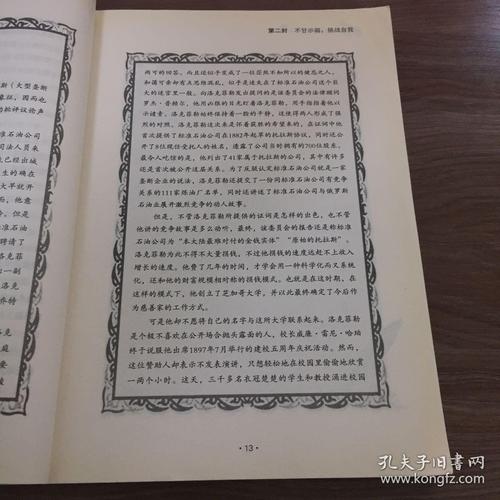 第二封 不甘示弱,挑战自我
斯(大型垄断
象征,因而也
的批评议论声
准石油公司
司法人员来
也已经出城
生的确在
大羊就开
。但是
标准石油
聘请了
洛克菲
出一副
乔特
洛克
庭
菱
两可的回答。而且还似乎变成了一位茫然不知所以的健忘之人,
和蔼可亲却有点思维混乱,似乎是迷失在了标准石油公司这个巨
大的迷宫里。一向洛克菲勒发出提问的是该委员会的法律顾问
罗杰·普赖尔,他用凶狠的目光盯着洛克菲勒,用手指指着他以
示谴责。洛克菲勒始终保持着一份平静,这使得两人形成了强
烈的对照。洛克菲勒这次来是怀着获胜的希望来的,在证词中他
首次提供了标准石油公司在1882年起草的托拉斯协议,同时还公
开了8位现任受托人的姓名,透露了公司当时拥有的700位股东。
最令人吃惊的是,他列出了41家属于托拉斯的公司,其中有许多
还是首次被公开这层关系。为了反驳认定标准石油公司就是一家
垄断企业的说法,洛克菲勒还提交了一份同标准石油公司有竞争
关系的111家炼油厂名单,同时还讲述了标准石油公司与俄罗斯
石油业展开激烈竞争的动人故事。
但是,不管洛克菲勒所提供的证词是怎样的出色,也不管
他讲的竞争故事是多么动听,最终,该委员会的报告还是称标准
石油公司为“本大陆最难对付的金钱实体”“原始的托拉斯”。
洛克菲勒为此不得不大量捐钱,不过捐钱的速度还赶不上收入
增长的速度。他费了几年的时间,才学会用一种科学化而又系统
化,还和他的财富规模相对称的捐钱模式。也就是在这时期,在
这样的模式下,他创立了芝加哥大学,并以此最终确定了今后作
为慈善家的工作方式。
可是他却不愿将自己的名字与这所大学联系起来。洛克菲勒
是个极不喜欢在公开场合抛头露面的人,校长威廉·雷尼·哈珀
终于说服他出席1897年7月举行的建校五周年庆祝活动。然而,
这位赞助人却表示不发表演讲,只想轻松地在校园里偷偷地欣赏
一两个小时。这天,三千多名衣冠楚楚的学生和教授涌进校园
·13·
孔夫子旧书网
www.kongfz.com